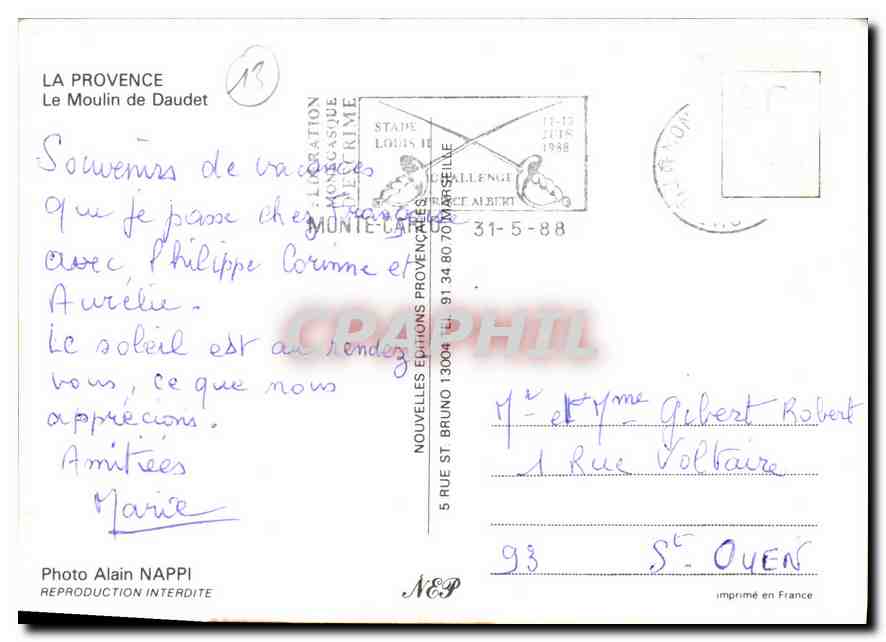 LA PROVENCE
Le Moulin de Daudet
13
Souvenirs de vacances
que je passe chez Françoise
avec Philippe Corinne et
Aurélie.
Le soleil est au rendez
vous, ce que nous
apprécions.
Amitiées
Marie
Photo Alain NAPPI
REPRODUCTION INTERDITE
MONEGASQUE
D'ESCRIME
STADE
LOUIS II
1988
CHALLENGE
PRINCE ALBERT
MONTE-CARLO 31-5-88
NOUVELLES EDITIONS PROVENÇALES
5 RUE ST. BRUNO 13004 TEL. 91 34 80 70 MARSEILLE
CPAPHIL
Mr et Mme Gibert Robert
1 Rue Voltaire
93 St. OUEN
NEP
imprimé en France